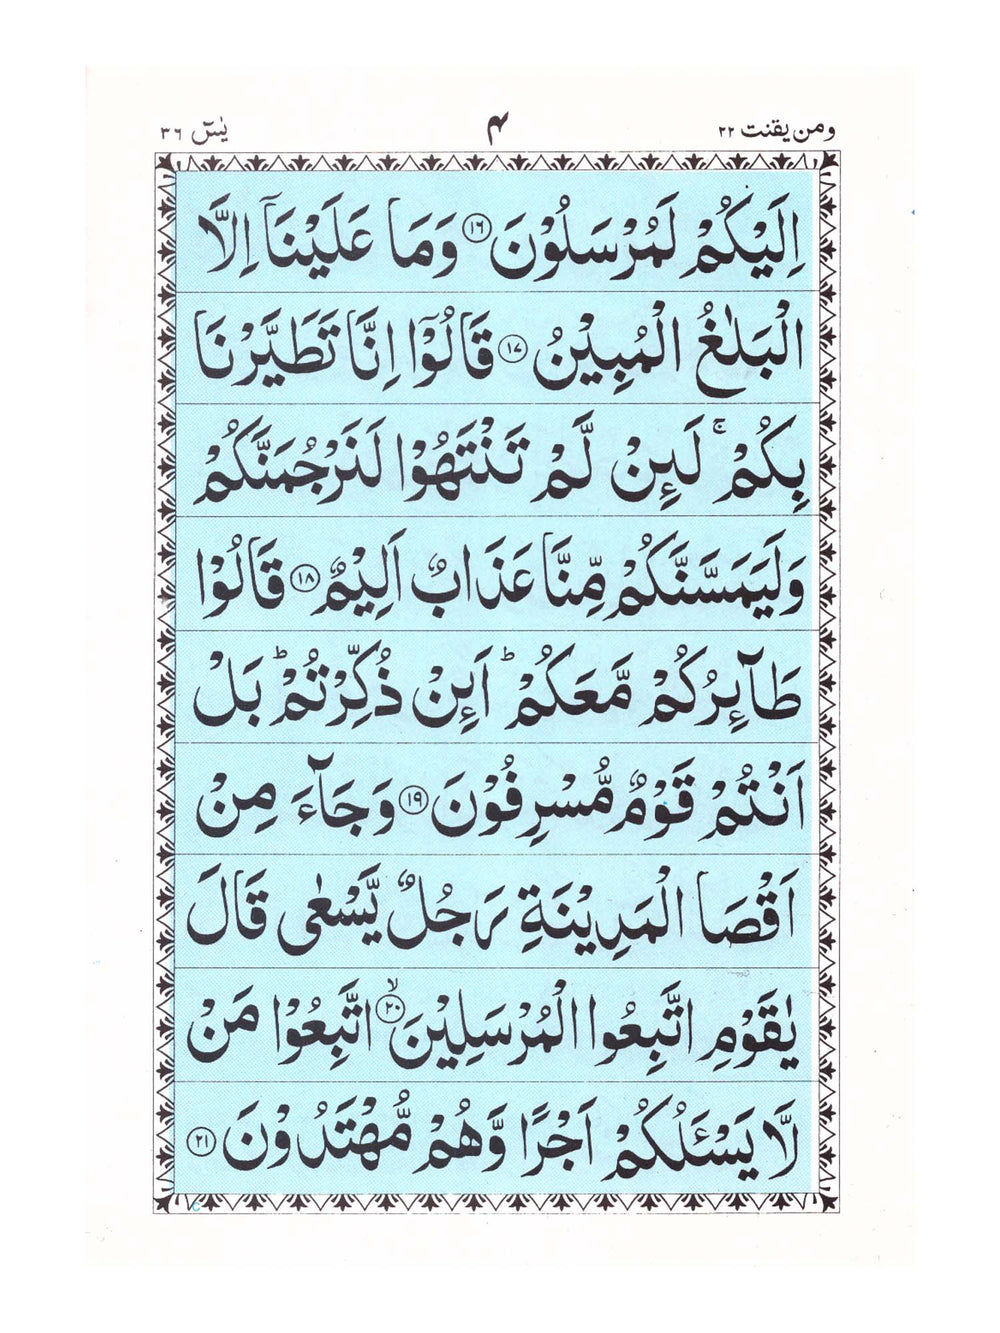 ومن یقنت ۲۲
۴
یٰسٓ ۳۶
اِلَیْكُمْ لَمُرْسَلُوْنَ ۝۱۶ وَمَا عَلَیْنَاۤ اِلَّا
الْبَلٰغُ الْمُبِیْنُ ۝۱۷ قَالُوْۤا اِنَّا تَطَیَّرْنَا
بِكُمْ ۚ لَىِٕنْ لَّمْ تَنْتَهُوْا لَنَرْجُمَنَّكُمْ
وَلَیَمَسَّنَّكُمْ مِّنَّا عَذَابٌ اَلِیْمٌ ۝۱۸ قَالُوْا
طَآىِٕرُكُمْ مَّعَكُمْ ؕ اَىِٕنْ ذُكِّرْتُمْ ؕ بَلْ
اَنْتُمْ قَوْمٌ مُّسْرِفُوْنَ ۝۱۹ وَجَآءَ مِنْ
اَقْصَا الْمَدِیْنَةِ رَجُلٌ یَّسْعٰی قَالَ
یٰقَوْمِ اتَّبِعُوا الْمُرْسَلِیْنَ ۝۲۰ۙ اتَّبِعُوْا مَنْ
لَّا یَسْـَٔلُكُمْ اَجْرًا وَّهُمْ مُّهْتَدُوْنَ ۝۲۱